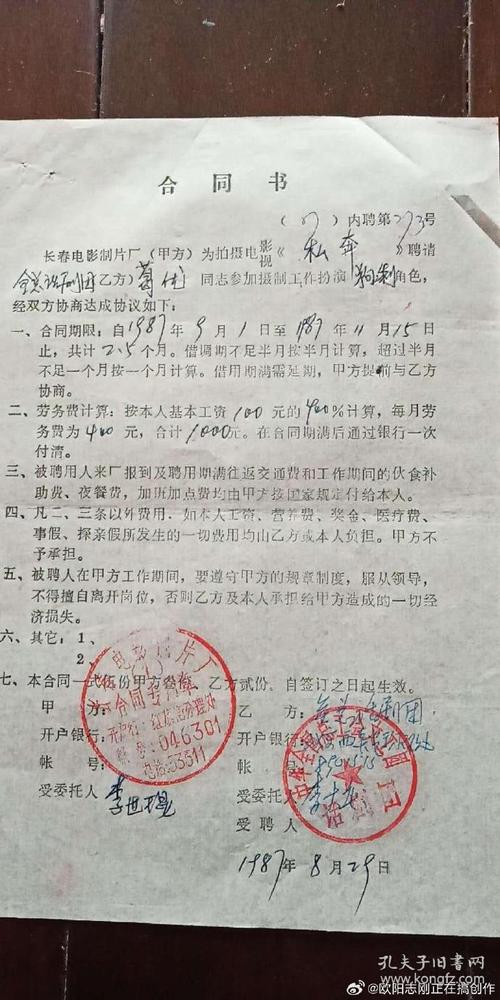 合同书
（87）内聘第273号
长春电影制片厂（甲方）为拍摄电影视《私奔》聘请
全总话剧团乙方）葛优 同志参加摄制工作扮演 角色，
经双方协商达成协议如下：
一、合同期限：自1987年9月1日至1987年11月15日
止，共计2.5个月。借调期不足半月按半月计算，超过半月
不足一个月按一个月计算。借用期满需延期，甲方提前与乙方
协商。
二、劳务费计算：按本人基本工资100元的400%计算，每月劳
务费为400元，合计1000元。在合同期满后通过银行一次
付清。
三、被聘用人来厂报到及聘用期满往返交通费和工作期间的伙食补
助费、夜餐费，加班加点费均由甲方按国家规定付给本人。
四、凡二、三条以外费用，如本人工资、营养费、奖金、医疗费、
事假、探亲假所发生的一切费用均由乙方或本人负担。甲方不
予承担。
五、被聘人在甲方工作期间，要遵守甲方的规章制度，服从领导，
不得擅自离开岗位，否则乙方及本人承担给甲方造成的一切经
济损失。
六、其它：1、
2、
七、本合同一式伍份甲方叁份，乙方贰份，自签订之日起生效。
甲方： 乙方：全总话剧团
开户银行 开户银行
帐号： 帐号：
受委托人 受委托人
受聘人
1987年8月29日
电影制片厂
合同专用章
开户行：
046301
电话：53511
话剧团
孔夫子旧书网
www.kongfz.com
@欧阳志刚正在搞创作